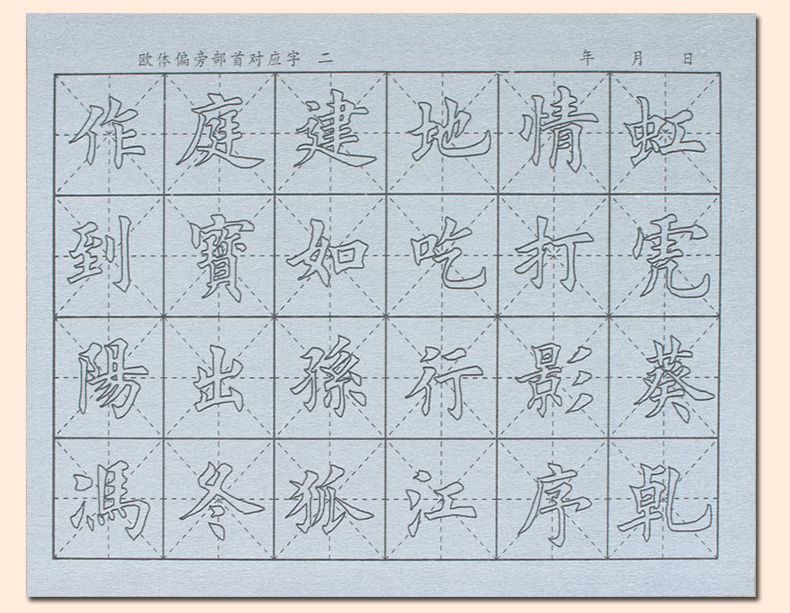 欧体偏旁部首对应字 二 年 月 日
作庭建地情虹
到寳如吃打虎
陽出孫行影葵
馮冬狐江序乹